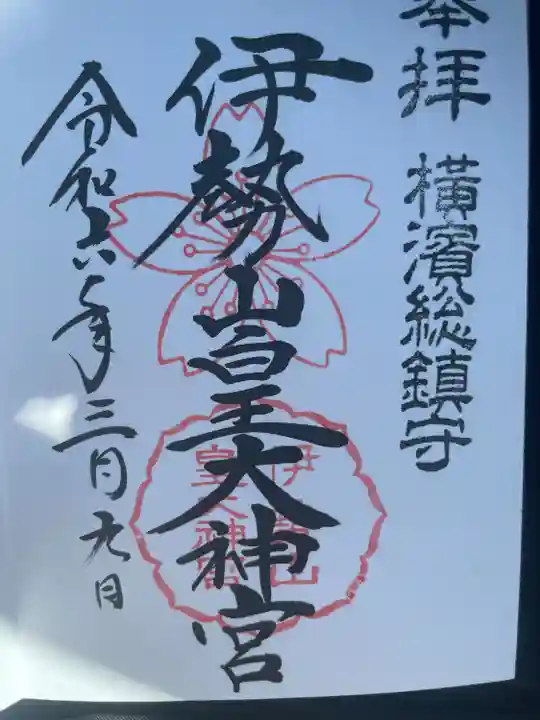 奉拝 横濱総鎮守
伊勢山皇大神宮
令和六年三月九日
伊勢山
皇大神宮